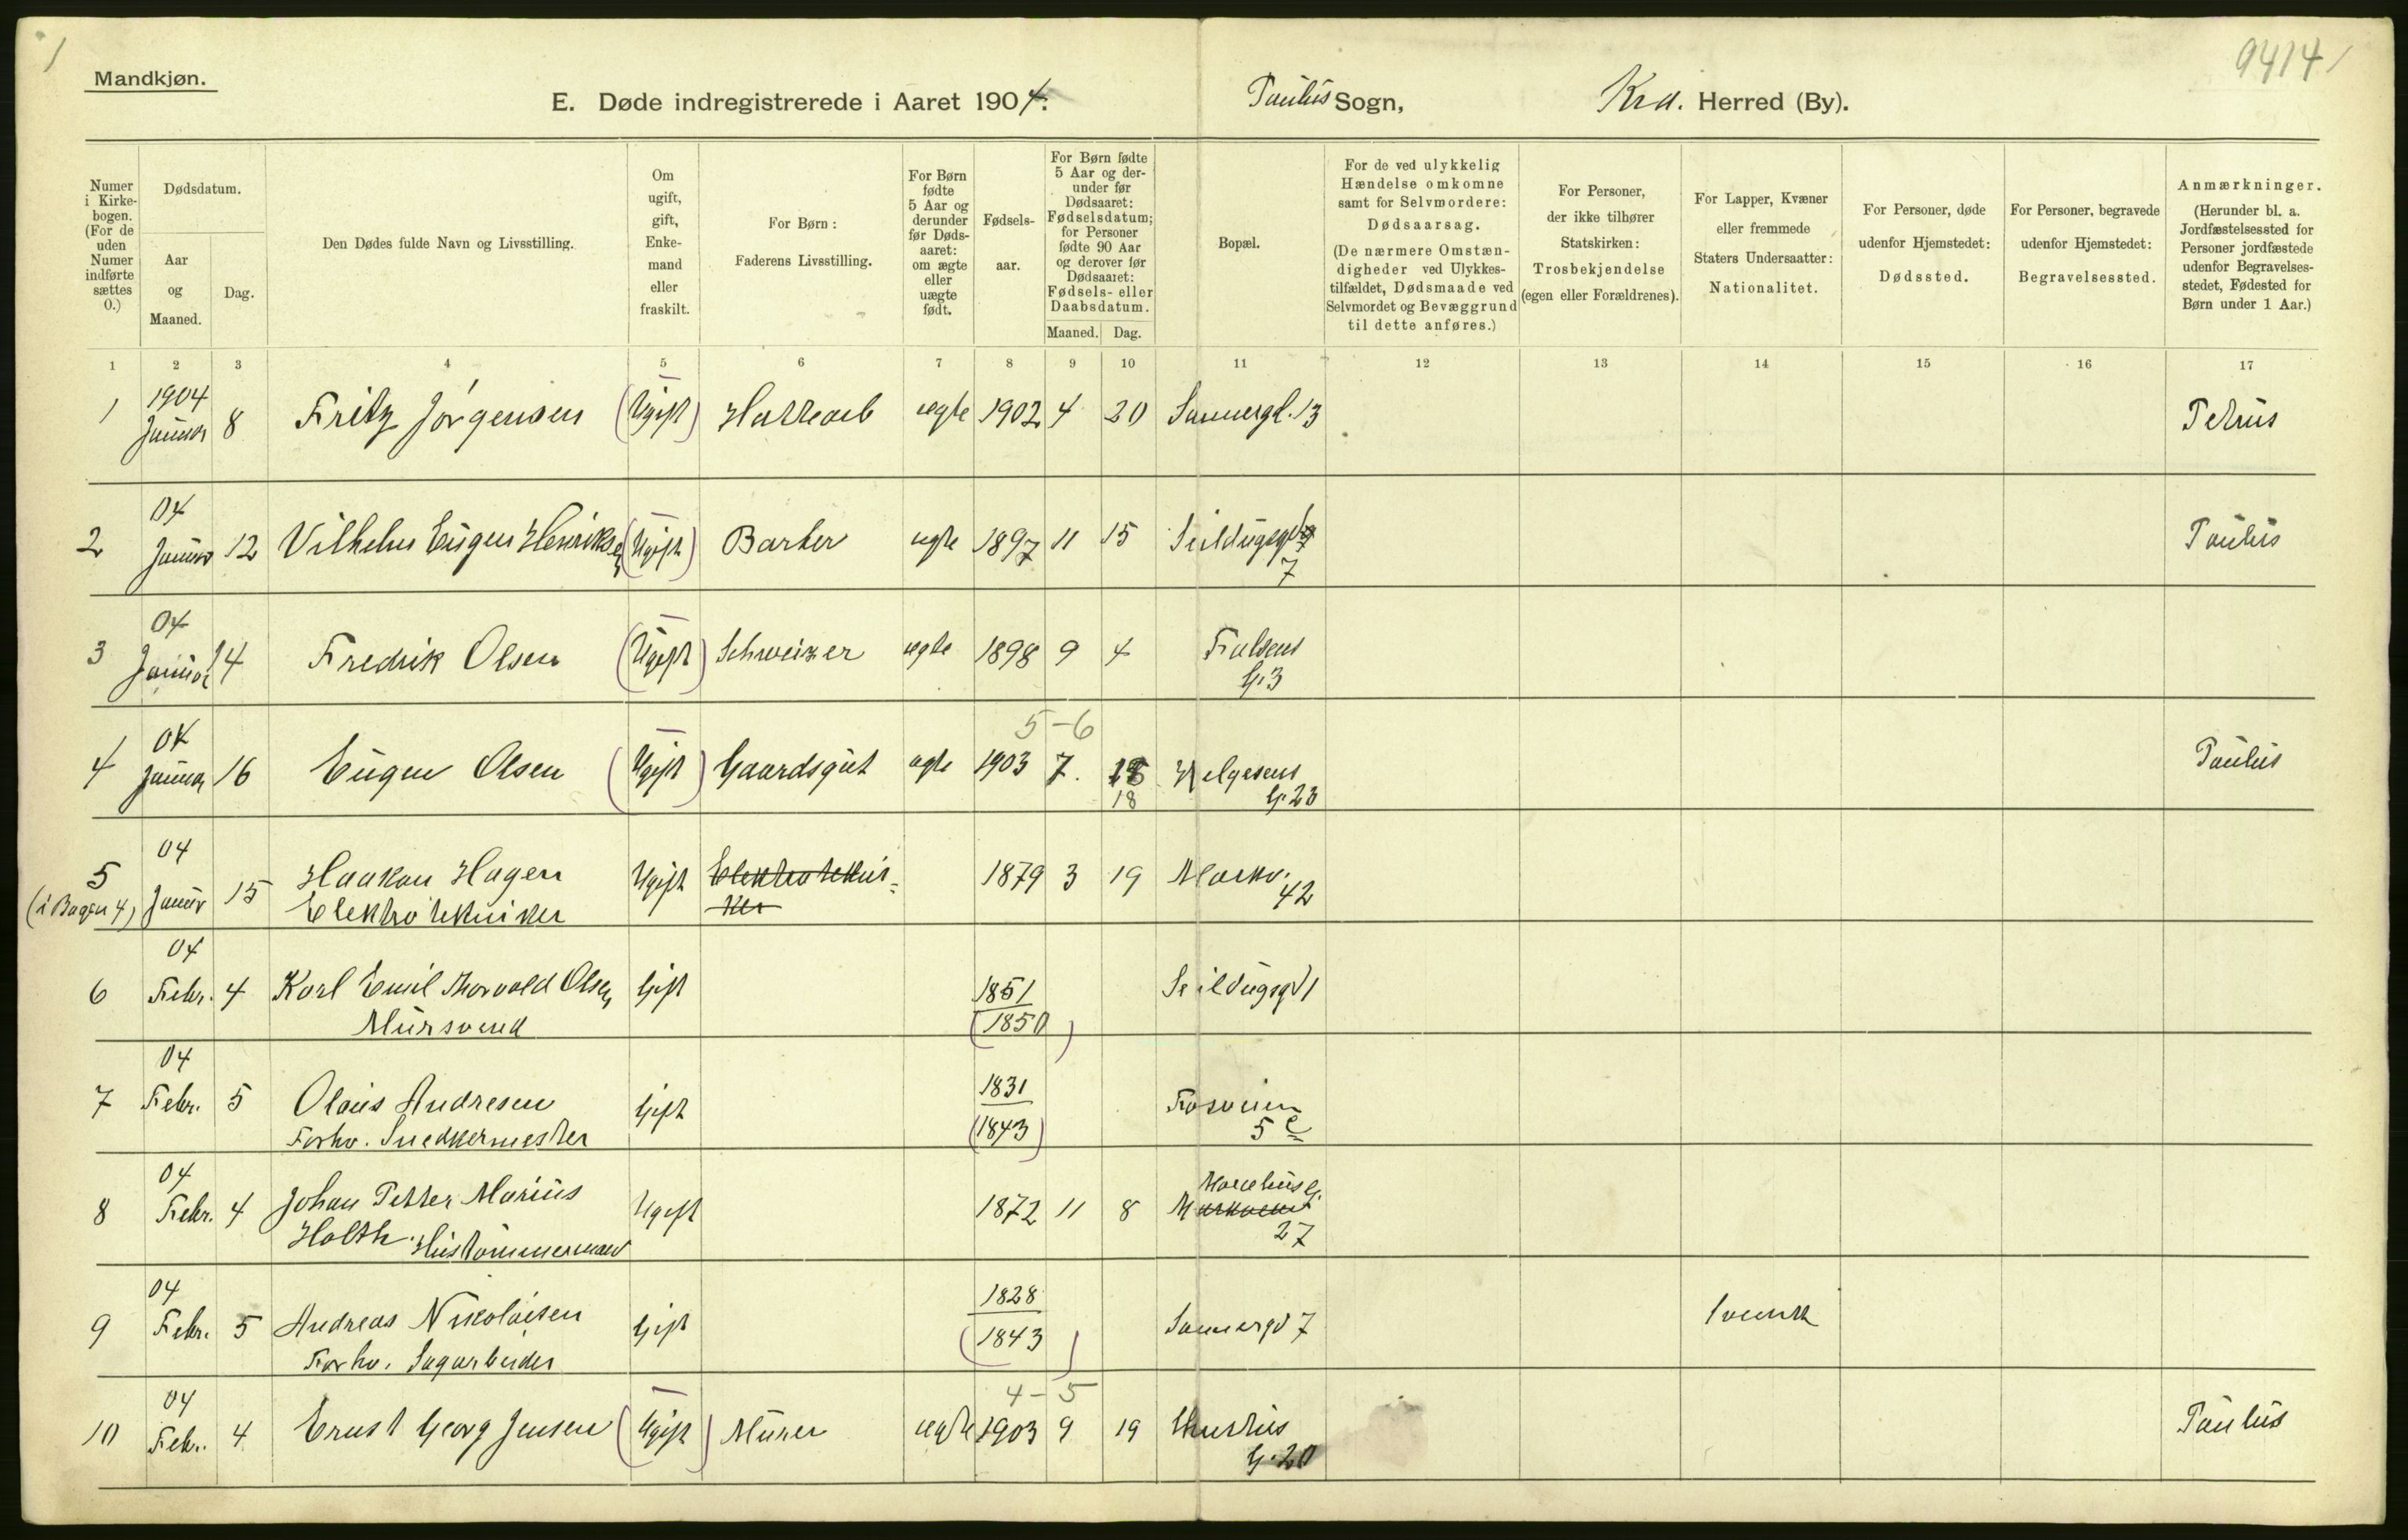 Mandkjøn.
9414
E. Døde indregistrerede i Aaret 1904. Paulus Sogn, Kra. Herred (By).
Numer i Kirkebogen. (For de uden Numer indførte sættes 0.)
Dødsdatum.
Aar og Maaned.
Dag.
Den Dødes fulde Navn og Livsstilling.
Om ugift, gift, Enkemand eller fraskilt.
For Børn: Faderens Livsstilling.
For Børn fødte 5 Aar og derunder før Dødsaaret: om ægte eller uægte født.
Fødselsaar.
For Børn fødte 5 Aar og derunder før Dødsaaret: Fødselsdatum; for Personer fødte 90 Aar og derover før Dødsaaret: Fødsels- eller Daabsdatum.
Maaned. Dag.
Bopæl.
For de ved ulykkelig Hændelse omkomne samt for Selvmordere: Dødsaarsag. (De nærmere Omstændigheder ved Ulykkestilfældet, Dødsmaade ved Selvmordet og Bevæggrund til dette anføres.)
For Personer, der ikke tilhører Statskirken: Trosbekjendelse (egen eller Forældrenes).
For Lapper, Kvæner eller fremmede Staters Undersaatter: Nationalitet.
For Personer, døde udenfor Hjemstedet: Dødssted.
For Personer, begravede udenfor Hjemstedet: Begravelsessted.
Anmærkninger. (Herunder bl. a. Jordfæstelsessted for Personer jordfæstede udenfor Begravelsesstedet, Fødested for Børn under 1 Aar.)
1 2 3 4 5 6 7 8 9 10 11 12 13 14 15 16 17
1 1904 Januar 8 Fritz Jørgensen (Ugift) ægte 1902 4 20 Sannergd. 13 Petrus
2 04 Januar 12 Vilhelm Eugen Henriksen (Ugift) Barber ægte 1897 11 15 Seildugsgd 7 Paulus
3 04 Januar 14 Fredrik Olsen (Ugift) Schweizer ægte 1898 9 4 Falsens G. 3
5-6
4 04 Januar 16 Eugen Olsen (Ugift) Gaardsgut ægte 1903 7. 18 Helgesens G. 23 Paulus
5 (i Bogen 4) 04 Januar 15 Haakon Hagen Elektrotekniker Ugift Elektrotekniker 1879 3 19 Markv. 42
6 04 Febr. 4 Karl Emil Thorvald Olsen Mursvend Gift 1851 (1850) Seildugsgd 1
7 04 Febr. 5 Olaus Andresen Forhv. Snedkermester Gift 1831 (1843) Fosveien 5 c
8 04 Febr. 4 Johan Petter Marius Holth. Hustømmermand Ugift 1872 11 8 Markveien 27
9 04 Febr. 5 Andreas Nikolaisen Forhv. Sagarbeider Gift 1828 (1843) Sannergd 7 Svensk
4-5
10 04 Febr. 4 Ernst Georg Jensen (Ugift) Murer ægte 1903 9 19 G. 20 Paulus